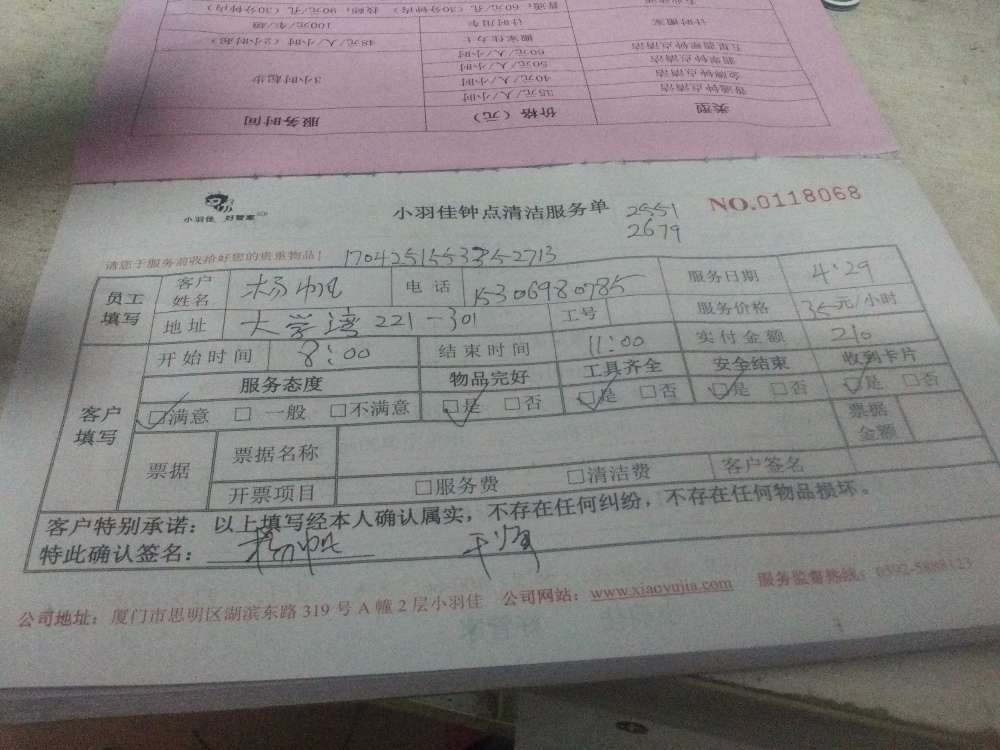 普通：60元/小时（30分钟内） 技师：90元/小时（30分钟内）
计时搬家 计时用车 100元/车/趟
搬家佳力士 48元/人/小时（2小时起）
五星翡翠钟点清洁 60元/人/小时
翡翠钟点清洁 50元/人/小时
金牌钟点清洁 40元/人/小时 3小时起步
普通钟点清洁 35元/人/小时
类型 价格（元） 服务时间
小羽佳 好管家
小羽佳钟点清洁服务单 2551 NO.0118068
2679
请您于服务前收给好您的贵重物品！
员工填写 客户姓名 杨帆 电话 15306980785 服务日期 4·29
地址 大学湾221-301 工号 服务价格 35元/小时
客户填写 开始时间 8:00 结束时间 11:00 实付金额 210
服务态度 物品完好 工具齐全 安全结束 收到卡片
☑满意 □一般 □不满意 ☑是 □否 ☑是 □否 ☑是 □否 ☑是 □否
票据 票据名称 票据金额
开票项目 □服务费 □清洁费 客户签名
客户特别承诺：以上填写经本人确认属实，不存在任何纠纷，不存在任何物品损坏。
特此确认签名： 杨帆
公司地址：厦门市思明区湖滨东路319号A幢2层小羽佳 公司网站：www.xiaoyujia.com 服务监督热线：0592-5888123